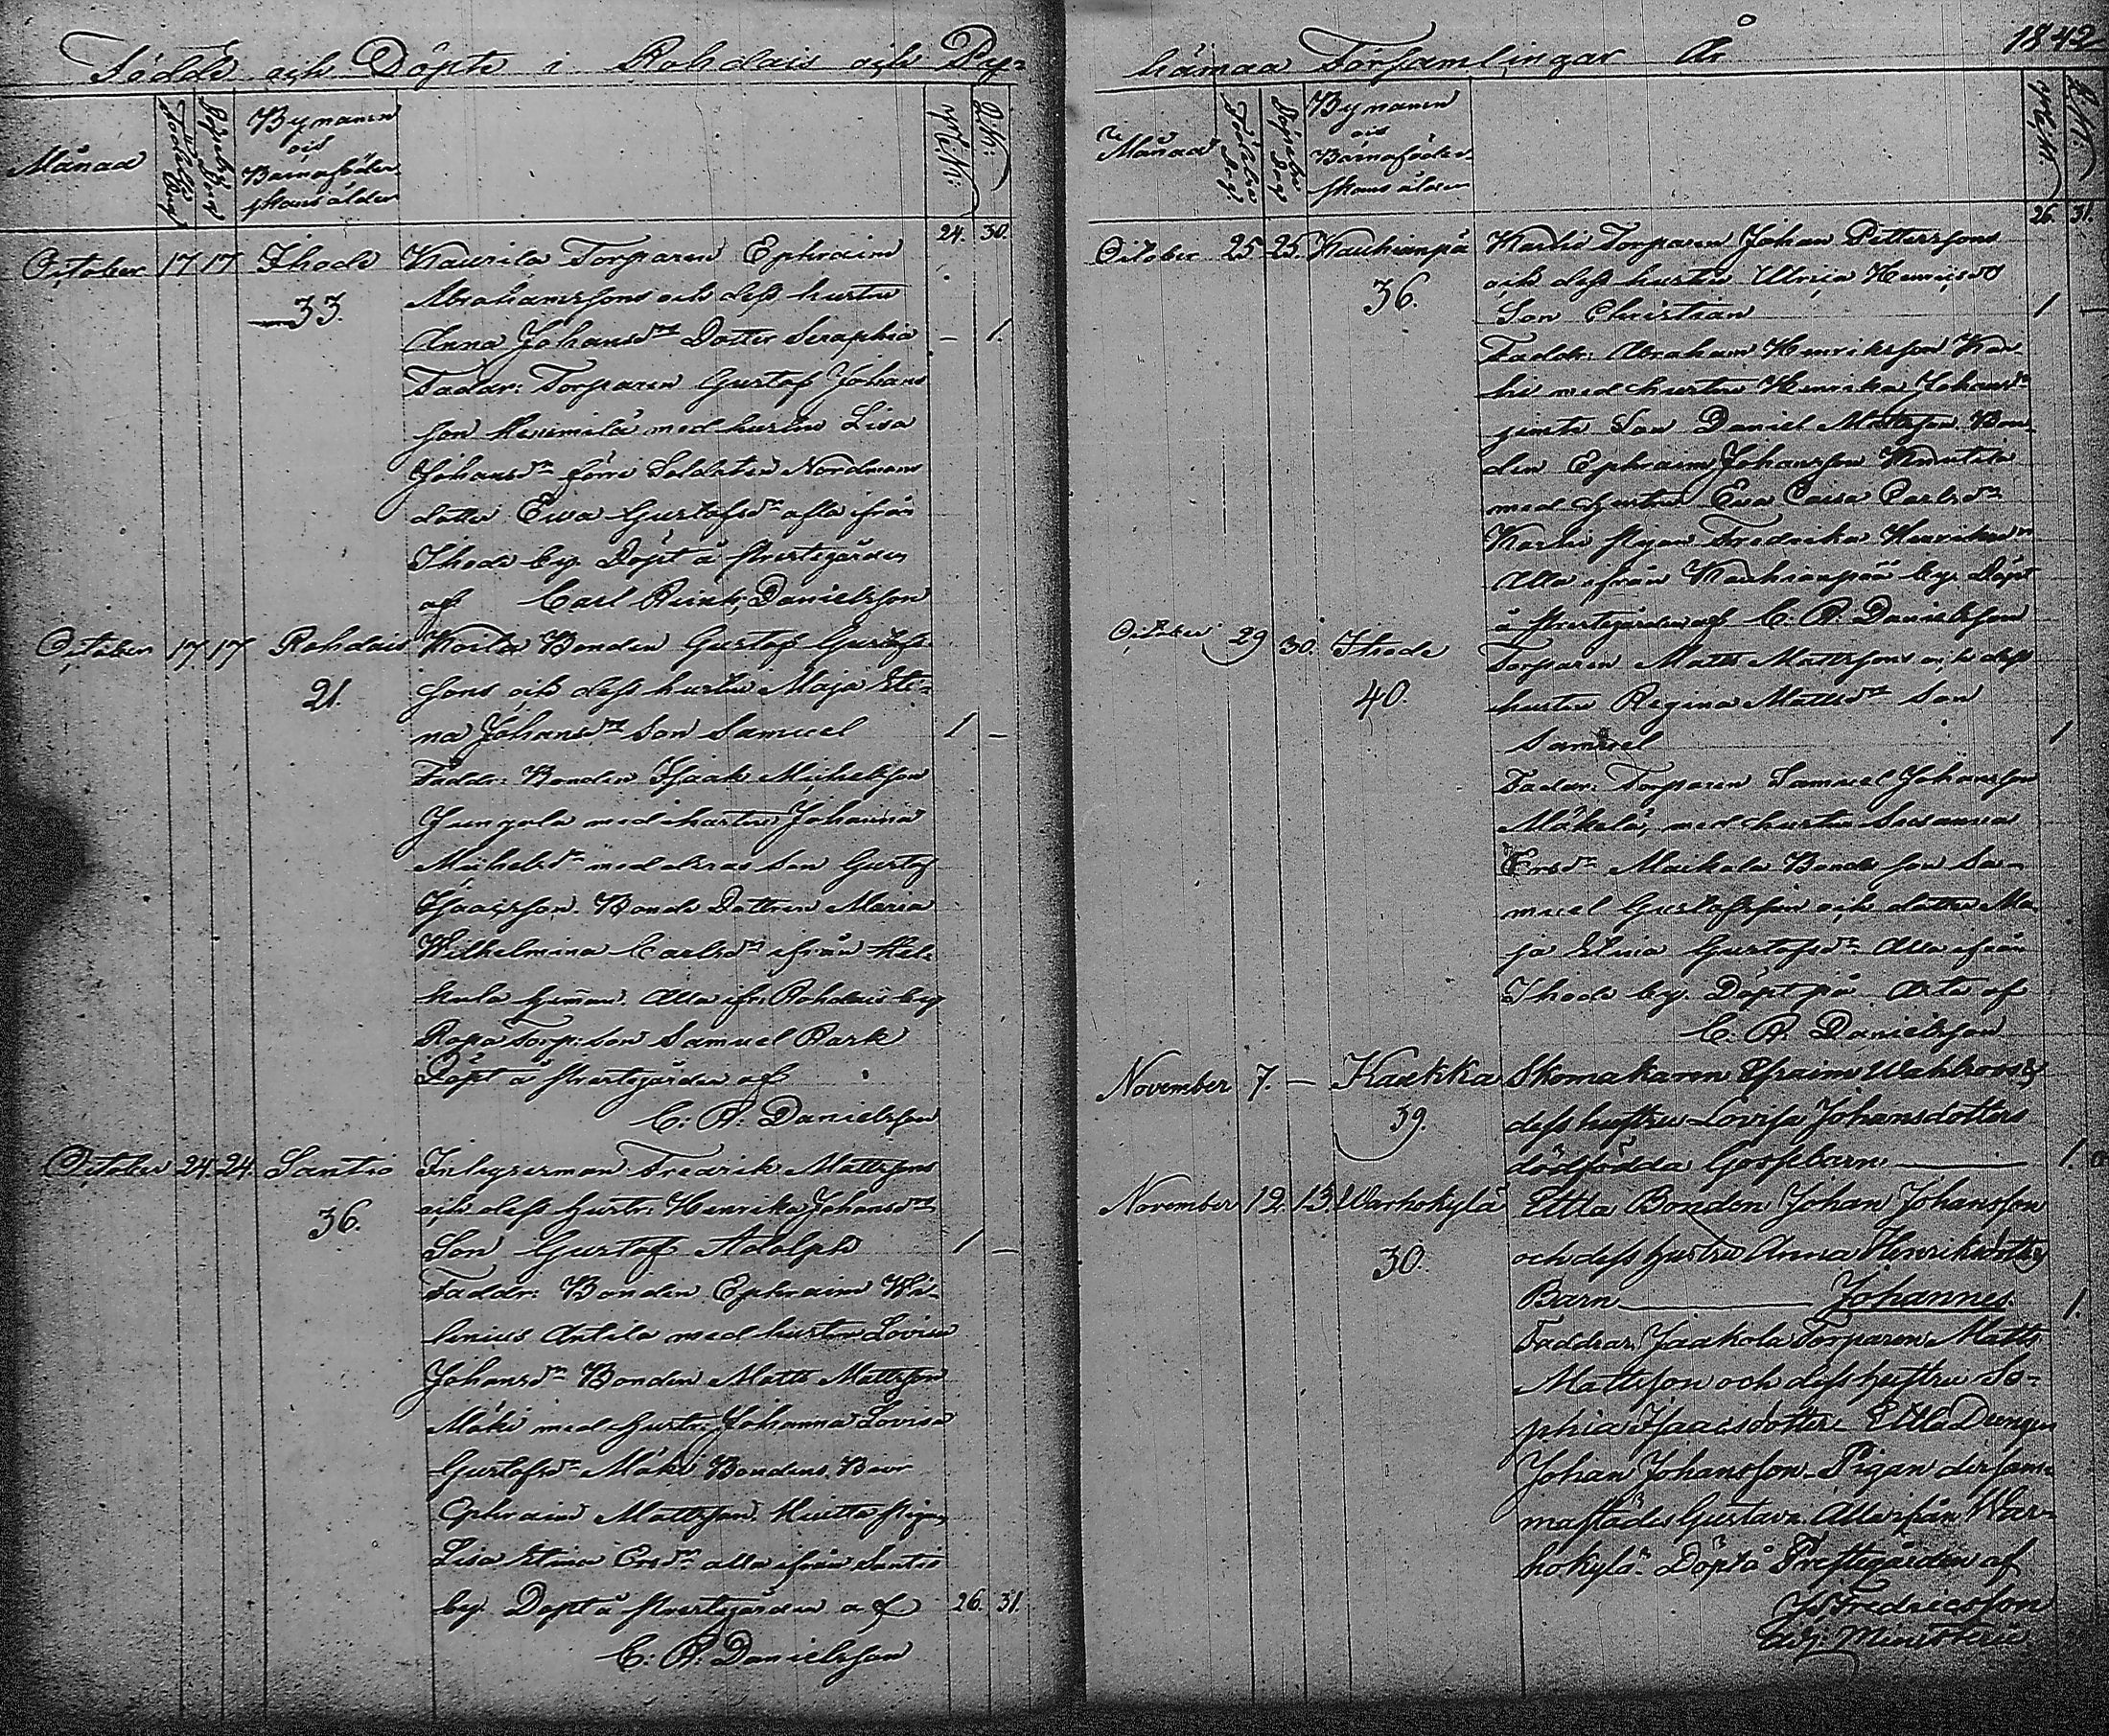 Födde och Döpte i Rohdais och Py-
Månad
Födelse Dag
Döpelse Dag
Bynamen
och
Barnaföder-
skans ålder
M:K:
Q:K:
24. 30.
October 17 17 Ihode Kaurila Torparen Ephraim
33. Abrahamssons och dess hustru
Anna Johansdr Dotter Seraphia — 1.
Faddr: Torparen Gustaf Johans
son med hustru Lisa
Johansdr förre Soldaten Nordmans
dotter Ewa Gustafsdr alla ifrån
Ihode by. Döpt å prestegården
af Carl Reinh: Danielsson
October 17 17 Rohdais Koila Bonden Gustaf Gustafs-
21. sons och dess hustru Maja Sti-
na Johansdr Son Samuel 1. —
Faddr: Bonden Isaak Michelsson
Jungola med hustru Johanna
Michelsdr med deras Son Gustaf
Isacsson. Bonde Dottren Maria
Wilhelmina Carlsdr ifrån
kula hemman. Alla ifr. Rohdais by
Rapa Torp: Son Samuel Rask
Döpt å prestegården af
C: R: Danielsson
October 24 24. Santio Inhysesman Fredrik Mattssons
36. och dess hustr: Henrika Johansdr
Son Gustaf Adolph 1 —
Faddr: Bonden Ephraim Wi-
lenius Antila med hustru Lovisa
Johansdr Bonden Matts Mattsson
Mäki med hustr: Johanna Lovisa
Gustafsdr Mäki Bondens Bror
Ephraim Mattsson. Huitta pigan
Lisa Stina Ersdr alla ifrån Santio
by. Döpt å prestegården af 26. 31.
C: R: Danielsson
hämaa Församlingar År 1842
Månad
Födelse Dag.
Döpelse Dag
Bynamen
och
Barnaföder-
skans ålder
M:K:
Q:K:
26. 31.
October 25 25. Kauhianpä Karhi Torparen Johan Petterssons
36. och dess hustru Ulrica Henricsdr
Son Christian 1 —
Faddr: Abraham Henriksson Kar-
hi med hustru Henrika Johansdr
jemte Son Daniel Mattsson. Bon-
den Ephraim Johansson
med hustru Ewa Caisa Carlsdr
Karhi pigan Fredrika Henriksdr
Alla ifrån Kauhianpää by. Döpt
å prestegården af C: R: Danielsson
October 29 30. Ihode Torparen Matts Mattssons och dess
40. hustru Regina Mattsdr Son
Samuel 1
Faddr: Torparen Samuel Johansson
Mäkelä, med hustru Susanna
Ersdr Maikola Bonde Son Sa-
muel Gustafsson och dotter Ma-
ja Stina Gustafsdr Alla ifrån
Ihode by. Döpt på Arta af
C. R. Danielsson
November 7. — Kaukka Skomakaren Efraim Wahlroos &
39. dess hustru Lovisa Johansdotters
dödfödda Gossebarn 1.
November 12. 13. Warhokylä Ettla Bonden Johan Johansson
30. och dess hustru Anna Henriksdotters
Barn Johannes. 1.
Faddrar. Jaakola Torparen Matts
Mattsson och dess hustru So-
phia Isaacsdotter. Ettla Drengen
Johan Johansson. Pigan dersam-
mastädes Gustava. Alla ifrån War-
hokylä. Döpt å Prestegården af
Fredricsson
Adj. Ministerii